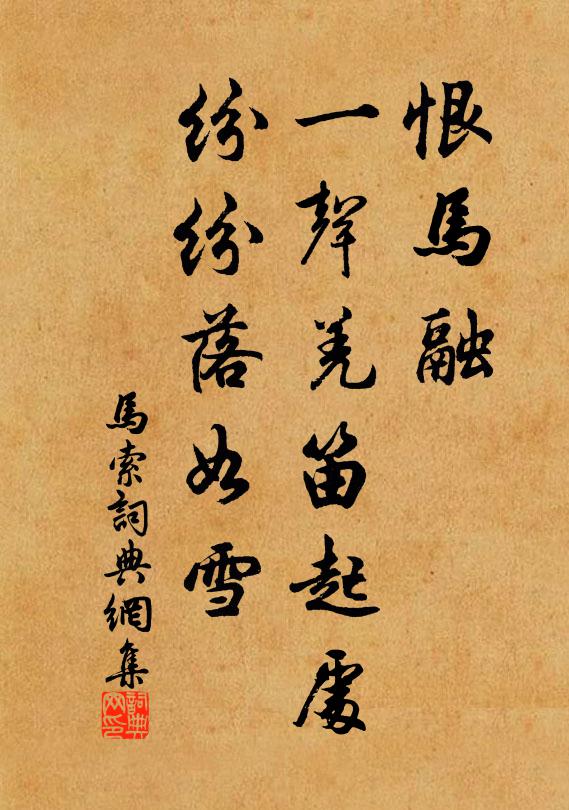 恨馬融
一聲羌笛起處
紛紛落如雪
馬索詞典網集
詞典
网印